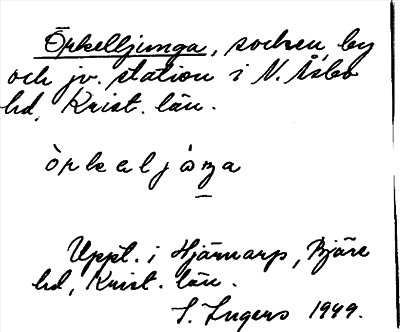 Örkelljunga, socken, by
och jv. station i N. Åsbo
hd, Krist. län.
örkeljåŋa
Uppt. i Hjärnarp, Bjäre
hd, Krist. län.
S. Ingers 1949.